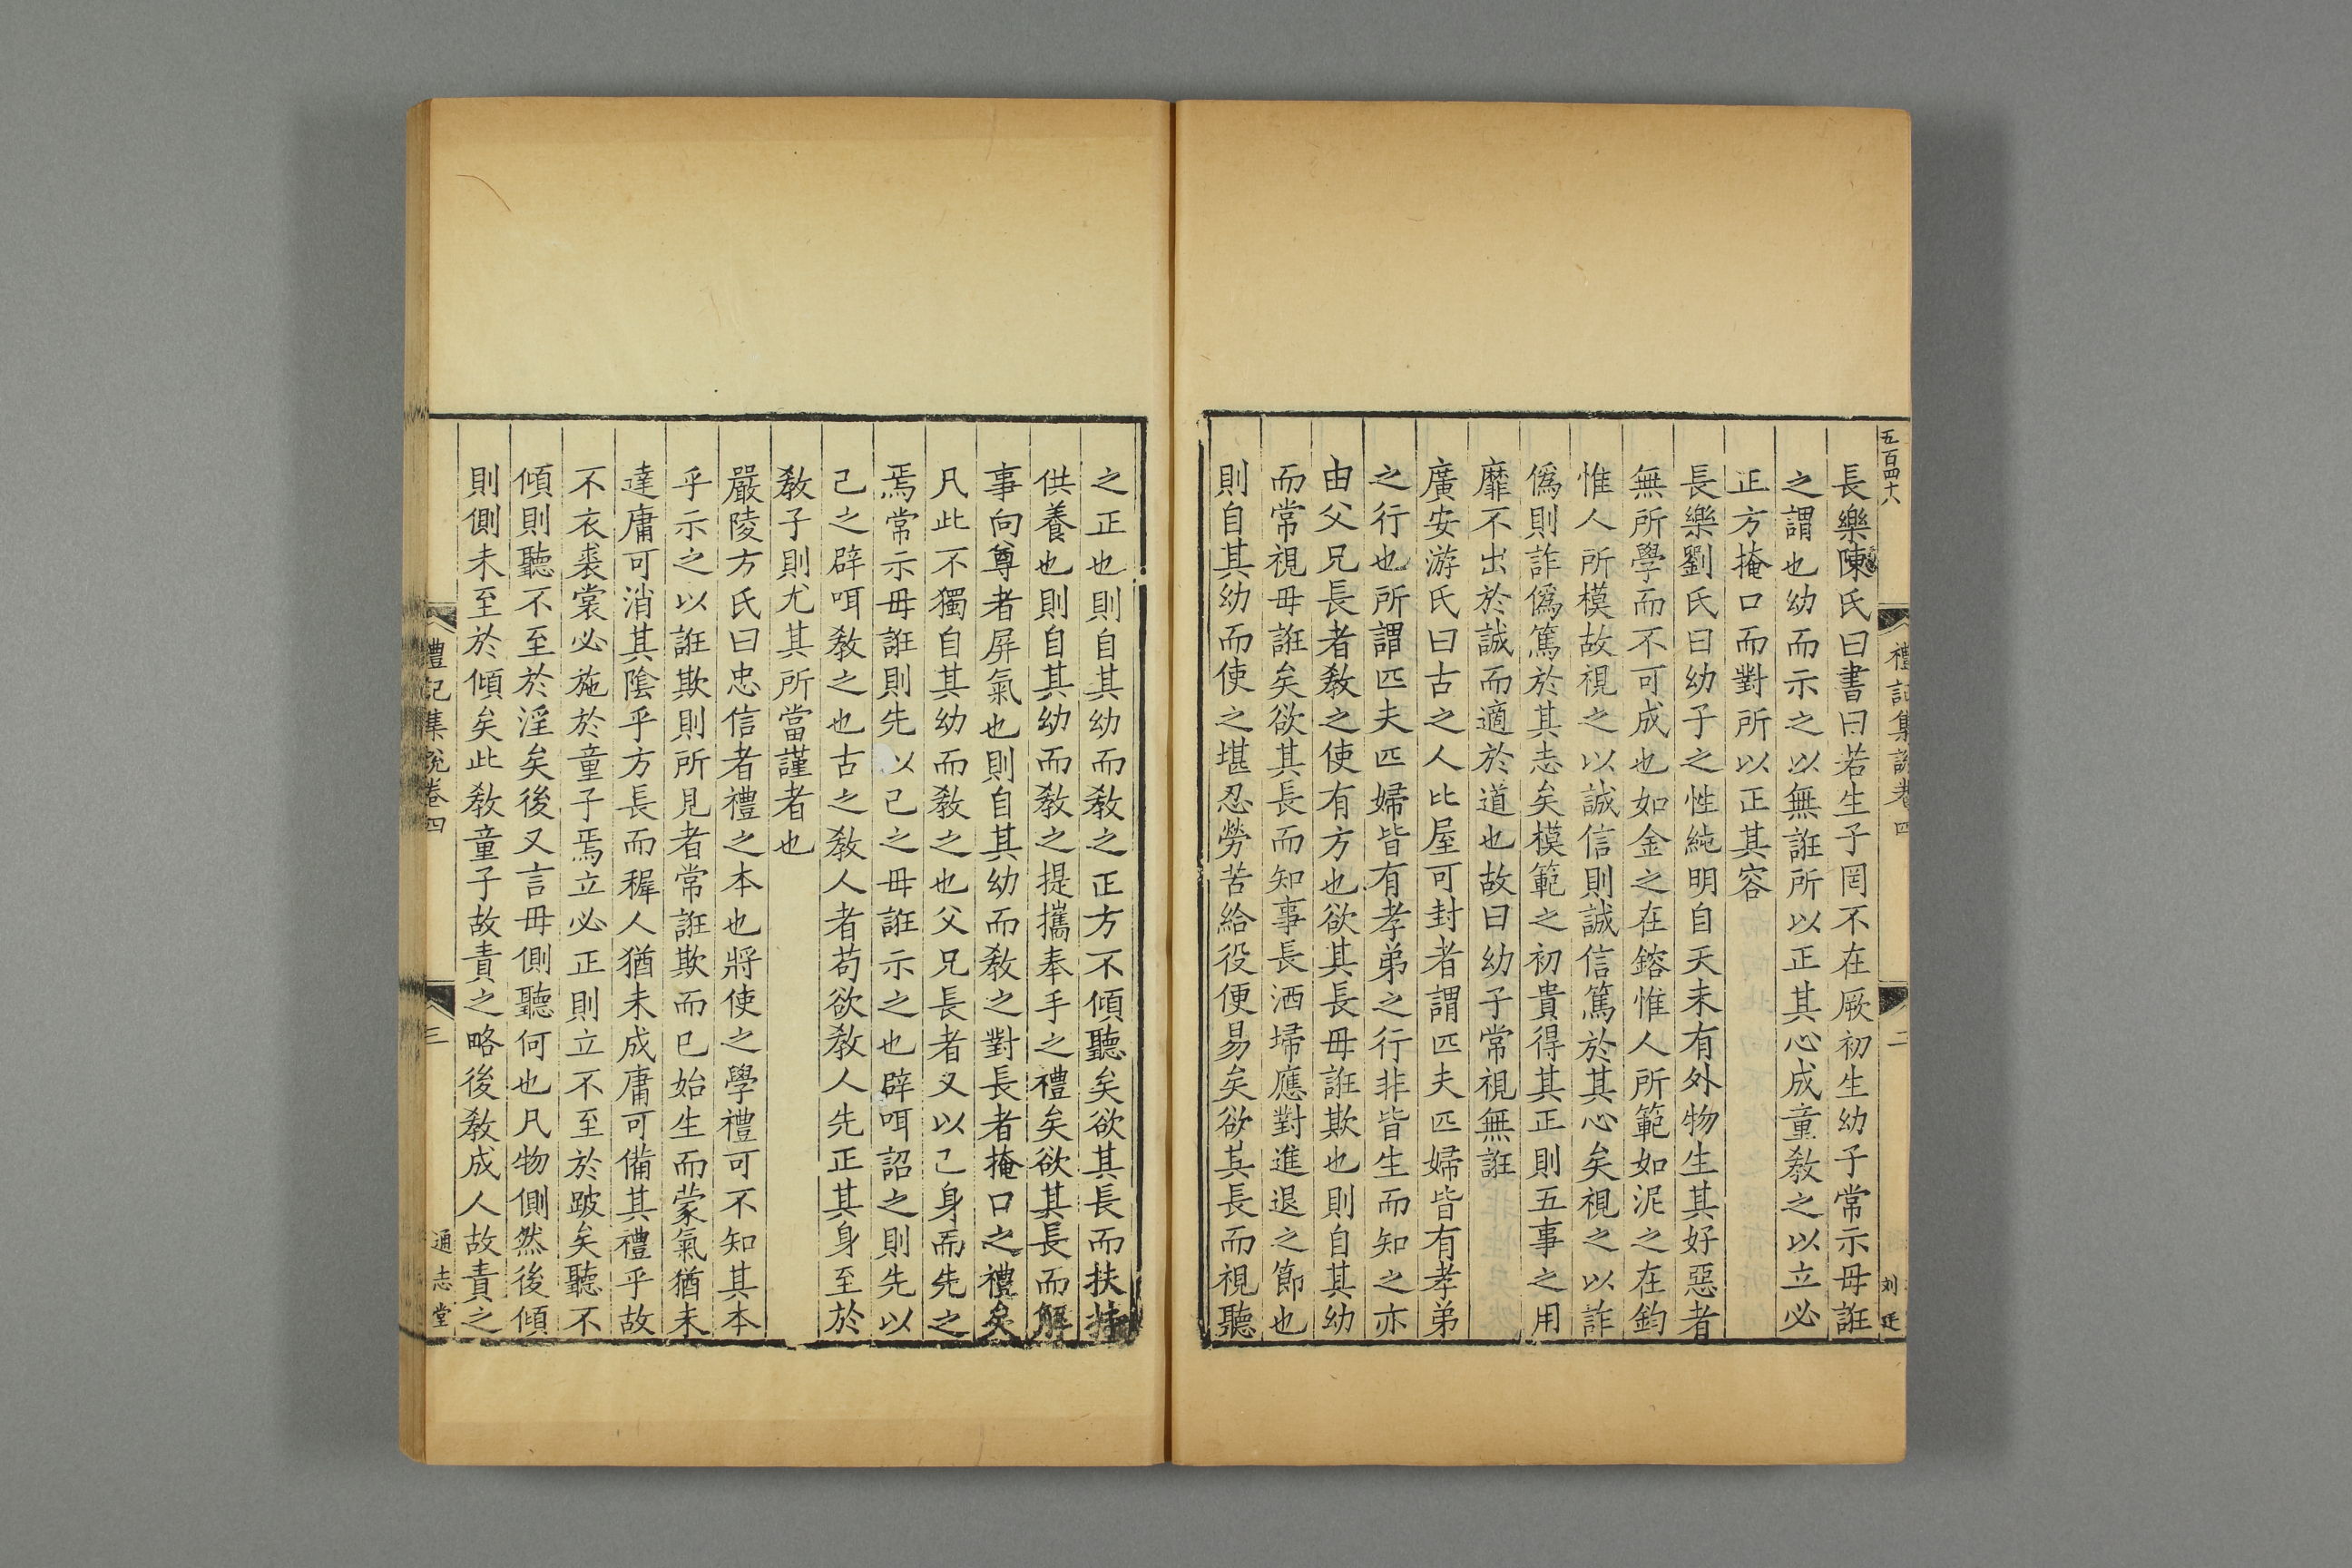 五百四十八
禮記集說卷四
二
刘廷
長樂陳氏曰書曰若生子罔不在厥初生幼子常示毋誑
之謂也幼而示之以無誑所以正其心成童教之以立必
正方掩口而對所以正其容
長樂劉氏曰幼子之性純明自天未有外物生其好惡者
無所學而不可成也如金之在鎔惟人所範如泥之在鈞
惟人所模故視之以誠信則誠信篤於其心矣視之以詐
僞則詐僞篤於其志矣模範之初貴得其正則五事之用
靡不出於誠而適於道也故曰幼子常視無誑
廣安游氏曰古之人比屋可封者謂匹夫匹婦皆有孝弟
之行也所謂匹夫匹婦皆有孝弟之行非皆生而知之亦
由父兄長者教之使有方也欲其長毋誑欺也則自其幼
而常視毋誑矣欲其長而知事長洒埽應對進退之節也
則自其幼而使之堪忍勞苦給役便易矣欲其長而視聽
之正也則自其幼而教之正方不傾聽矣欲其長而扶持
供養也則自其幼而教之提攜奉手之禮矣欲其長而解
事向尊者屏氣也則自其幼而教之對長者掩口之禮矣
凡此不獨自其幼而教之也父兄長者又以己身而先之
焉常示毋誑則先以己之毋誑示之也辟咡詔之則先以
己之辟咡教之也古之教人者苟欲教人先正其身至於
教子則尤其所當謹者也
嚴陵方氏曰忠信者禮之本也將使之學禮可不知其本
乎示之以誑欺則所見者常誑欺而已始生而蒙氣猶未
達庸可消其陰乎方長而穉人猶未成庸可備其禮乎故
不衣裘裳必施於童子焉立必正則立不至於跛矣聽不
傾則聽不至於淫矣後又言毋側聽何也凡物側然後傾
則側未至於傾矣此教童子故責之略後教成人故責之
禮記集說卷四
三
通志堂